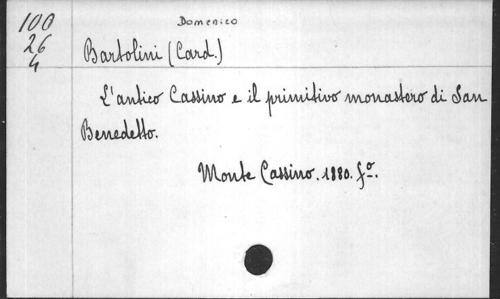 100
26
4
Domenico
Bartolini (Card.)
L'antico Cassino e il primitivo monastero di San
Benedetto.
Monte Cassino. 1880. fº.